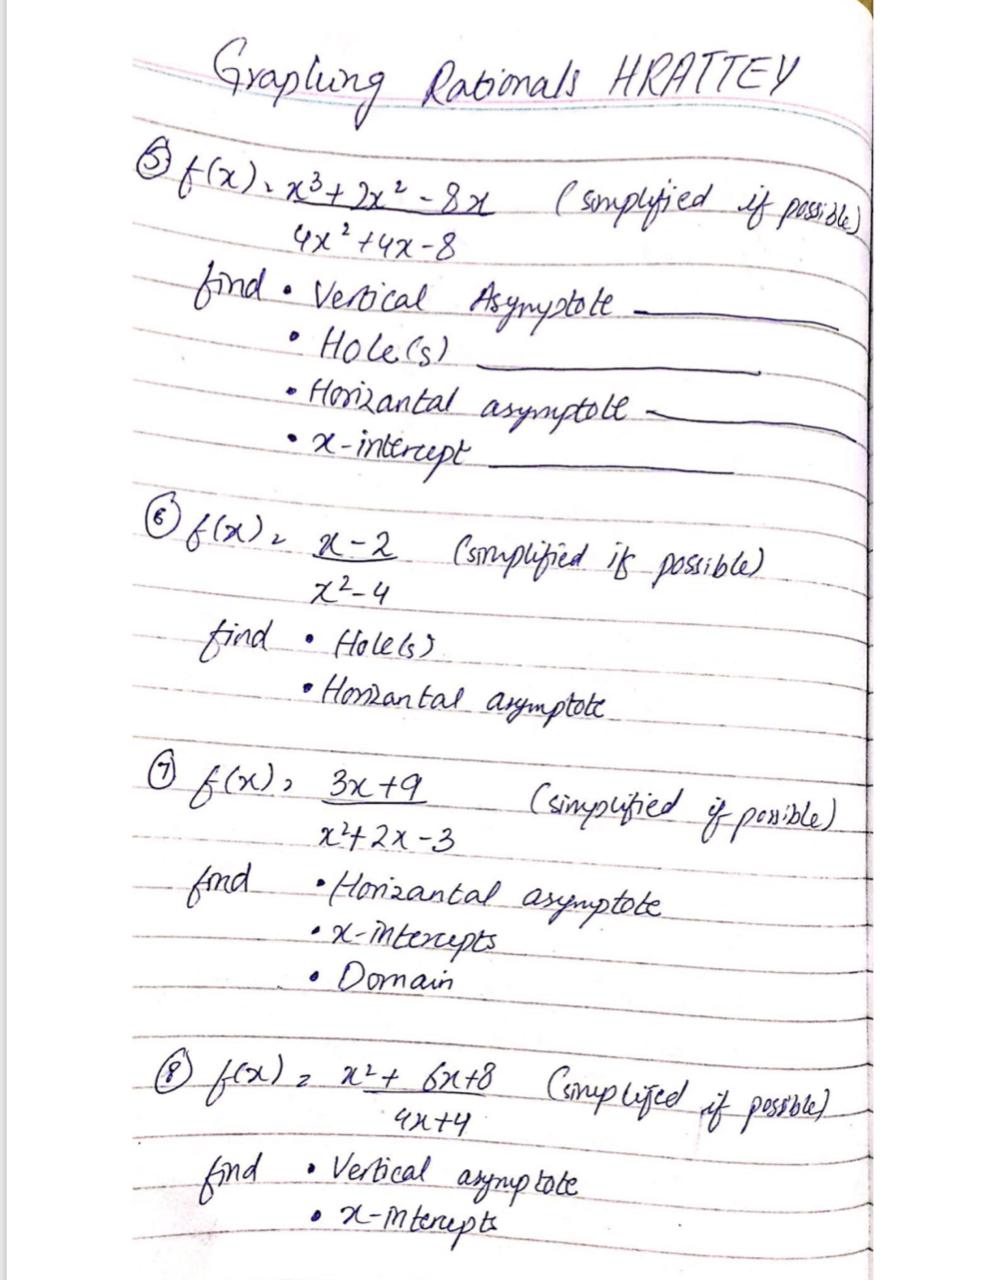 Graphing Rationals HRATTEY
⑤ f(x) = x³ + 2x² - 8x (simplified if possible)
4x² + 4x - 8
find • Vertical Asymptote
• Hole(s)
• Horizantal asymptote
• x-intercept
⑥ f(x) = x - 2 (simplified if possible)
x² - 4
find • Hole(s)
• Horizantal asymptote
⑦ f(x) = 3x + 9 (simplified if possible)
x² + 2x - 3
find • Horizantal asymptote
• x-intercepts
• Domain
⑧ f(x) = x² + 6x + 8 (simplified if possible)
4x + 4
find • Vertical asymptote
• x-intercepts